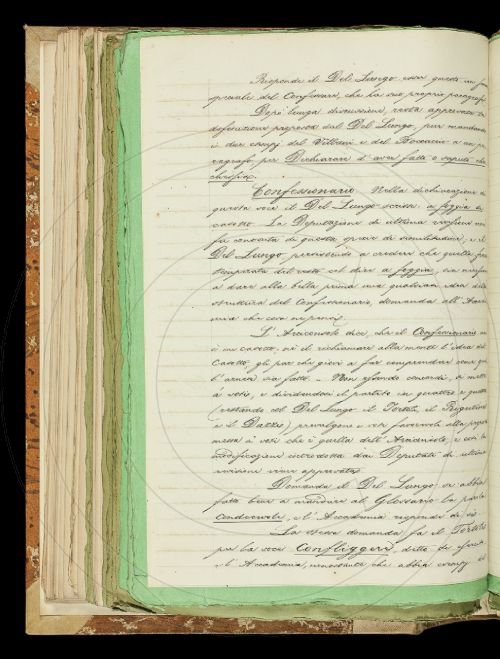 Risponde il Del Lungo esser questo un
speciale del Confessare, che ha suo proprio paragrafo
Dopo lunga discussione, resta approvata la
definizione proposta dal Del Lungo, pur mandando
i due esempj del Villani e del Boccaccio a un pa
ragrafo per Dichiarare d'aver fatto o saputo che
chessia.
Confessionario. Nella dichiarazione di
questa voce il Del Lungo scrisse a foggia di
casotto. La Deputazione di ultima revisione non
fu contenta di questa specie di similitudine, e il
Del Lungo, persistendo a credere che quella
temperata del resto col dire a foggia, sia
a dare alla bella prima una qualsiasi idea della
struttura del Confessionario, domanda all'Acca
mia che cosa ne pensi.
L'Arciconsolo dice, che il Confessionario
è un casotto, nè il richiamare alla mente l'idea di
Casotto gli par che giovi a far comprendere come
l'arnese sia fatto. – Non essendo concordi, si mette
ai voti, e dividendosi il partito in quattro e quattro
(restando col Del Lungo il Tortoli, il Rigutini
e il Dazzi) prevalgono i voti favorevoli alla proposta
messa ai voti che è quella dell'Arciconsolo, e così la
modificazione introdotta dai Deputati di ultima
revisione viene approvata.
Domanda il Del Lungo se abbia
fatto bene a mandare al Glossario la parola
, e l'Accademia risponde di sì.
La stessa domanda fa il Tortoli
per la voce Confliggere, detto
e l'Accademia, nonostante che abbia esempj